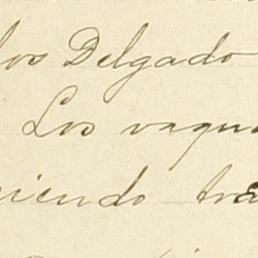 los Delgado
Los vaqu
iendo tra